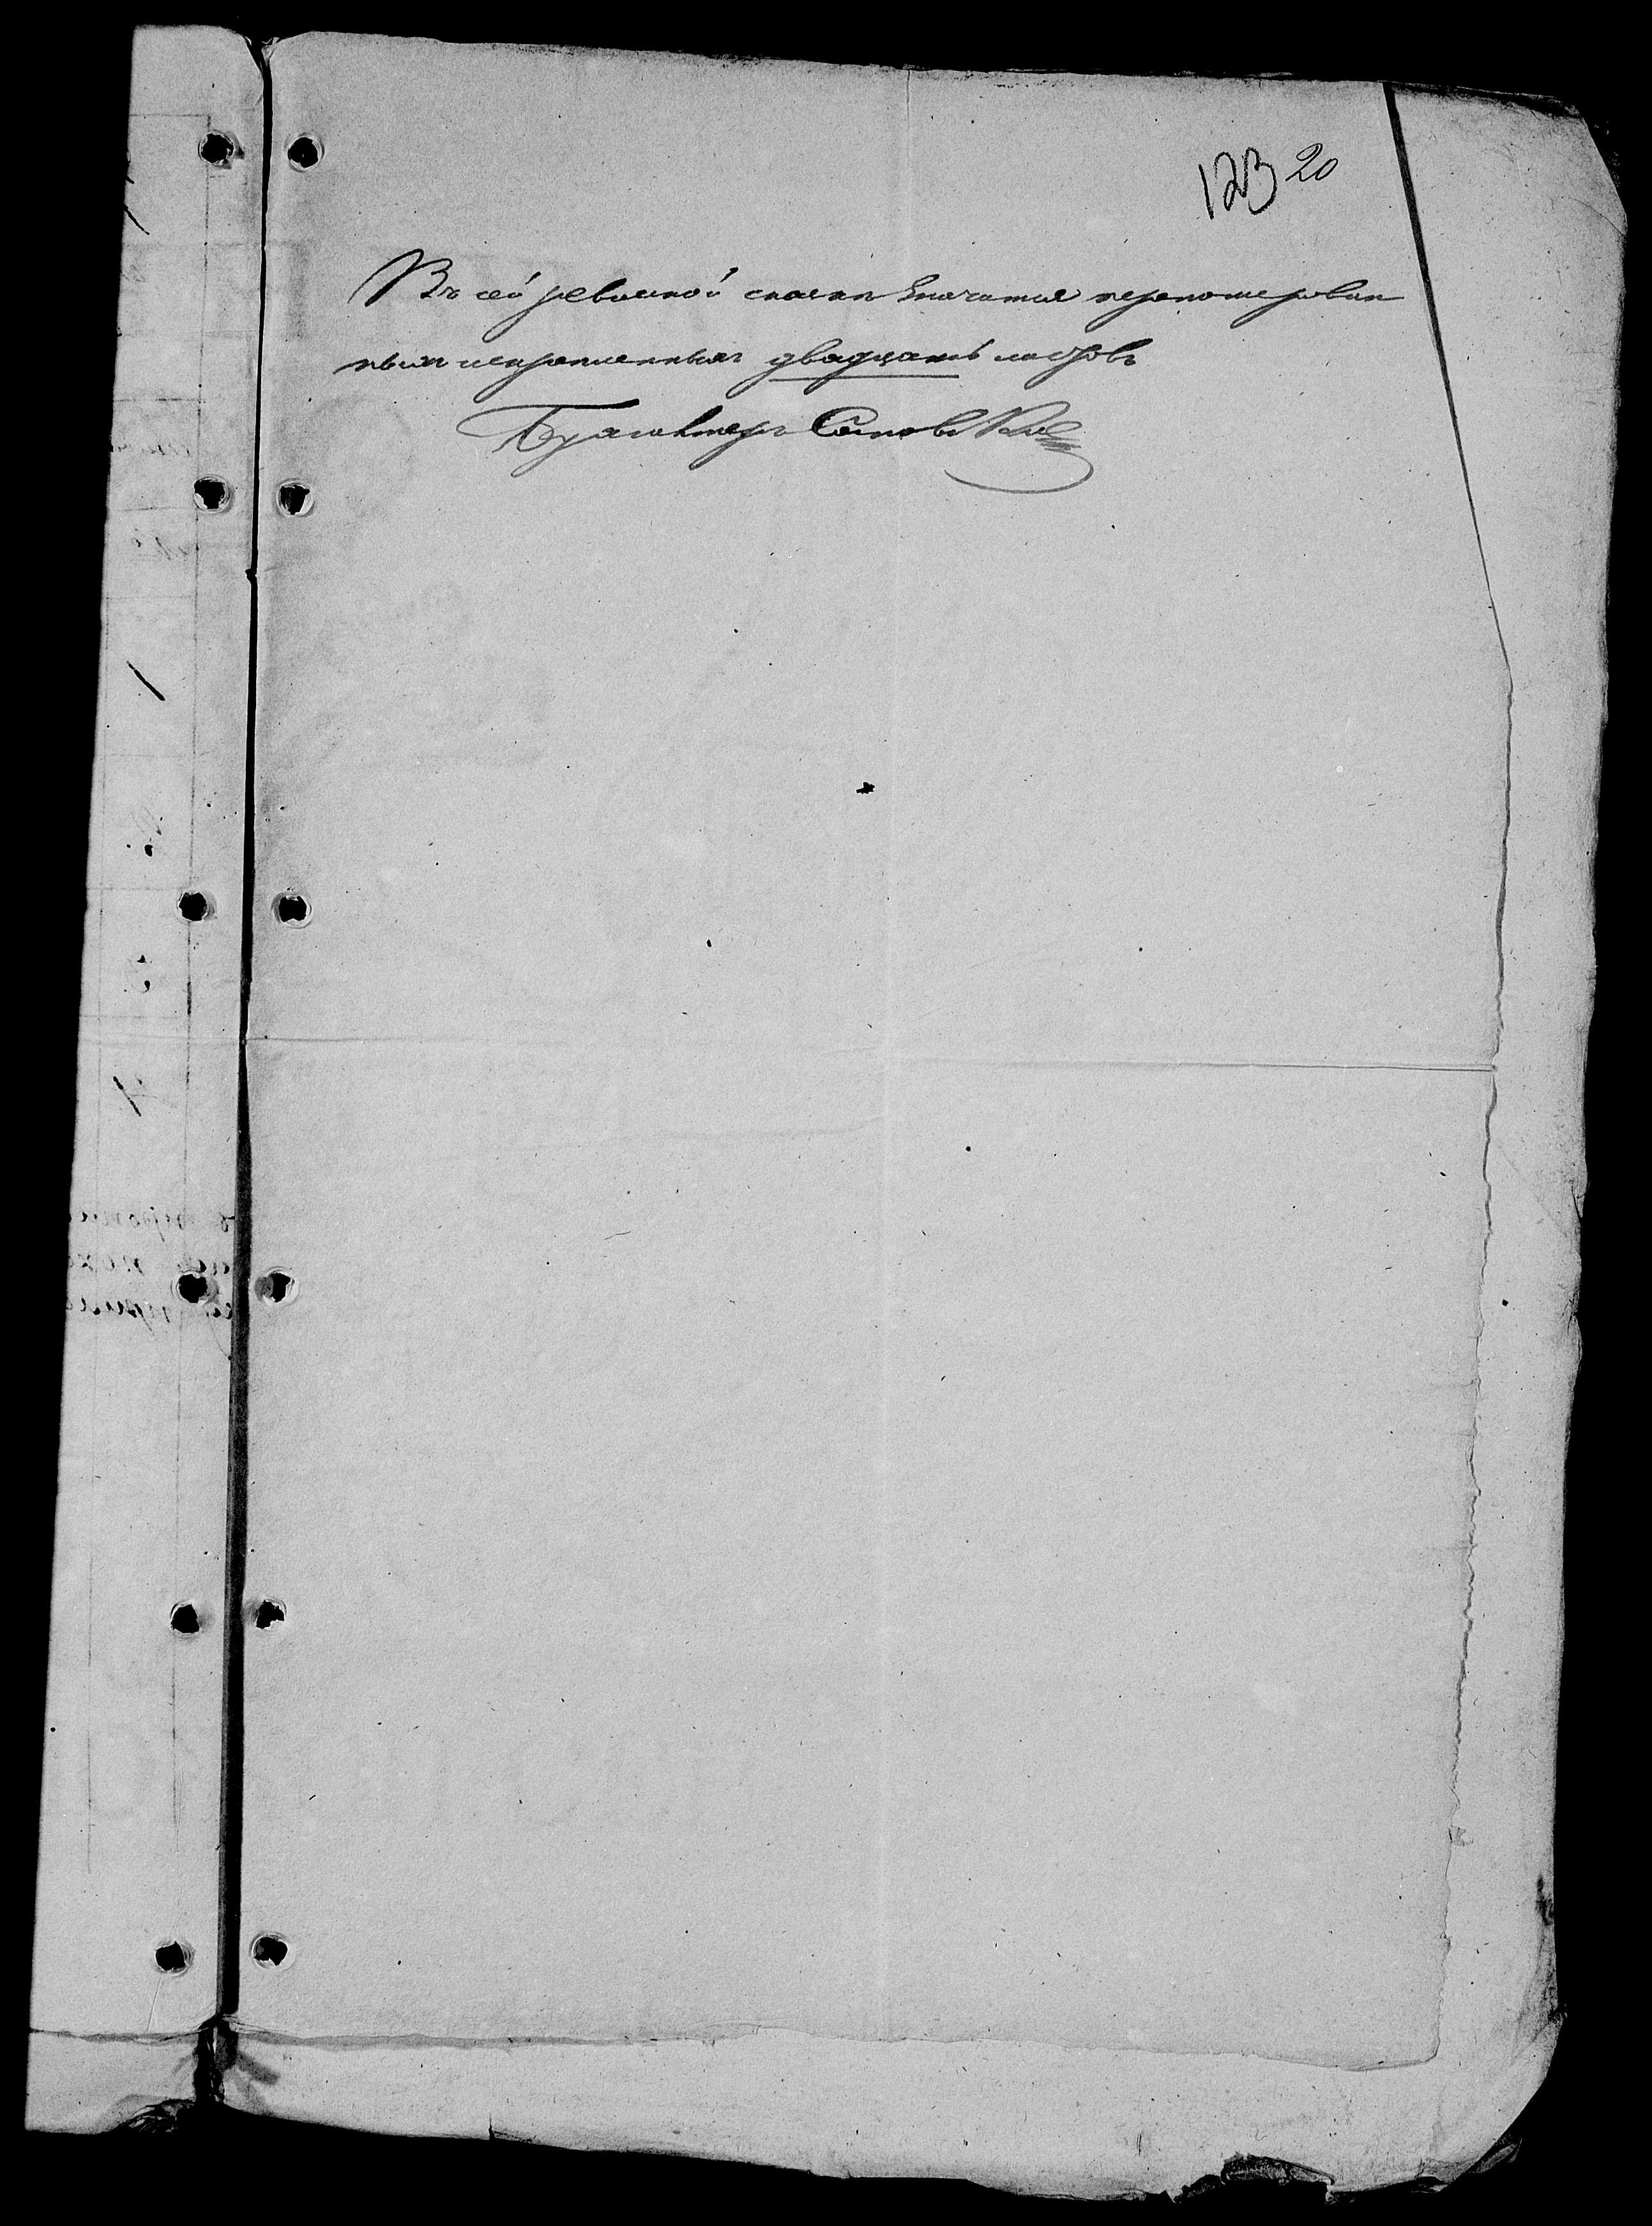 123 20
Въ сей ревизской сказки значится перенумерован
ныхъ и скрепленныхъ двадцать листовъ
Бухгалтеръ